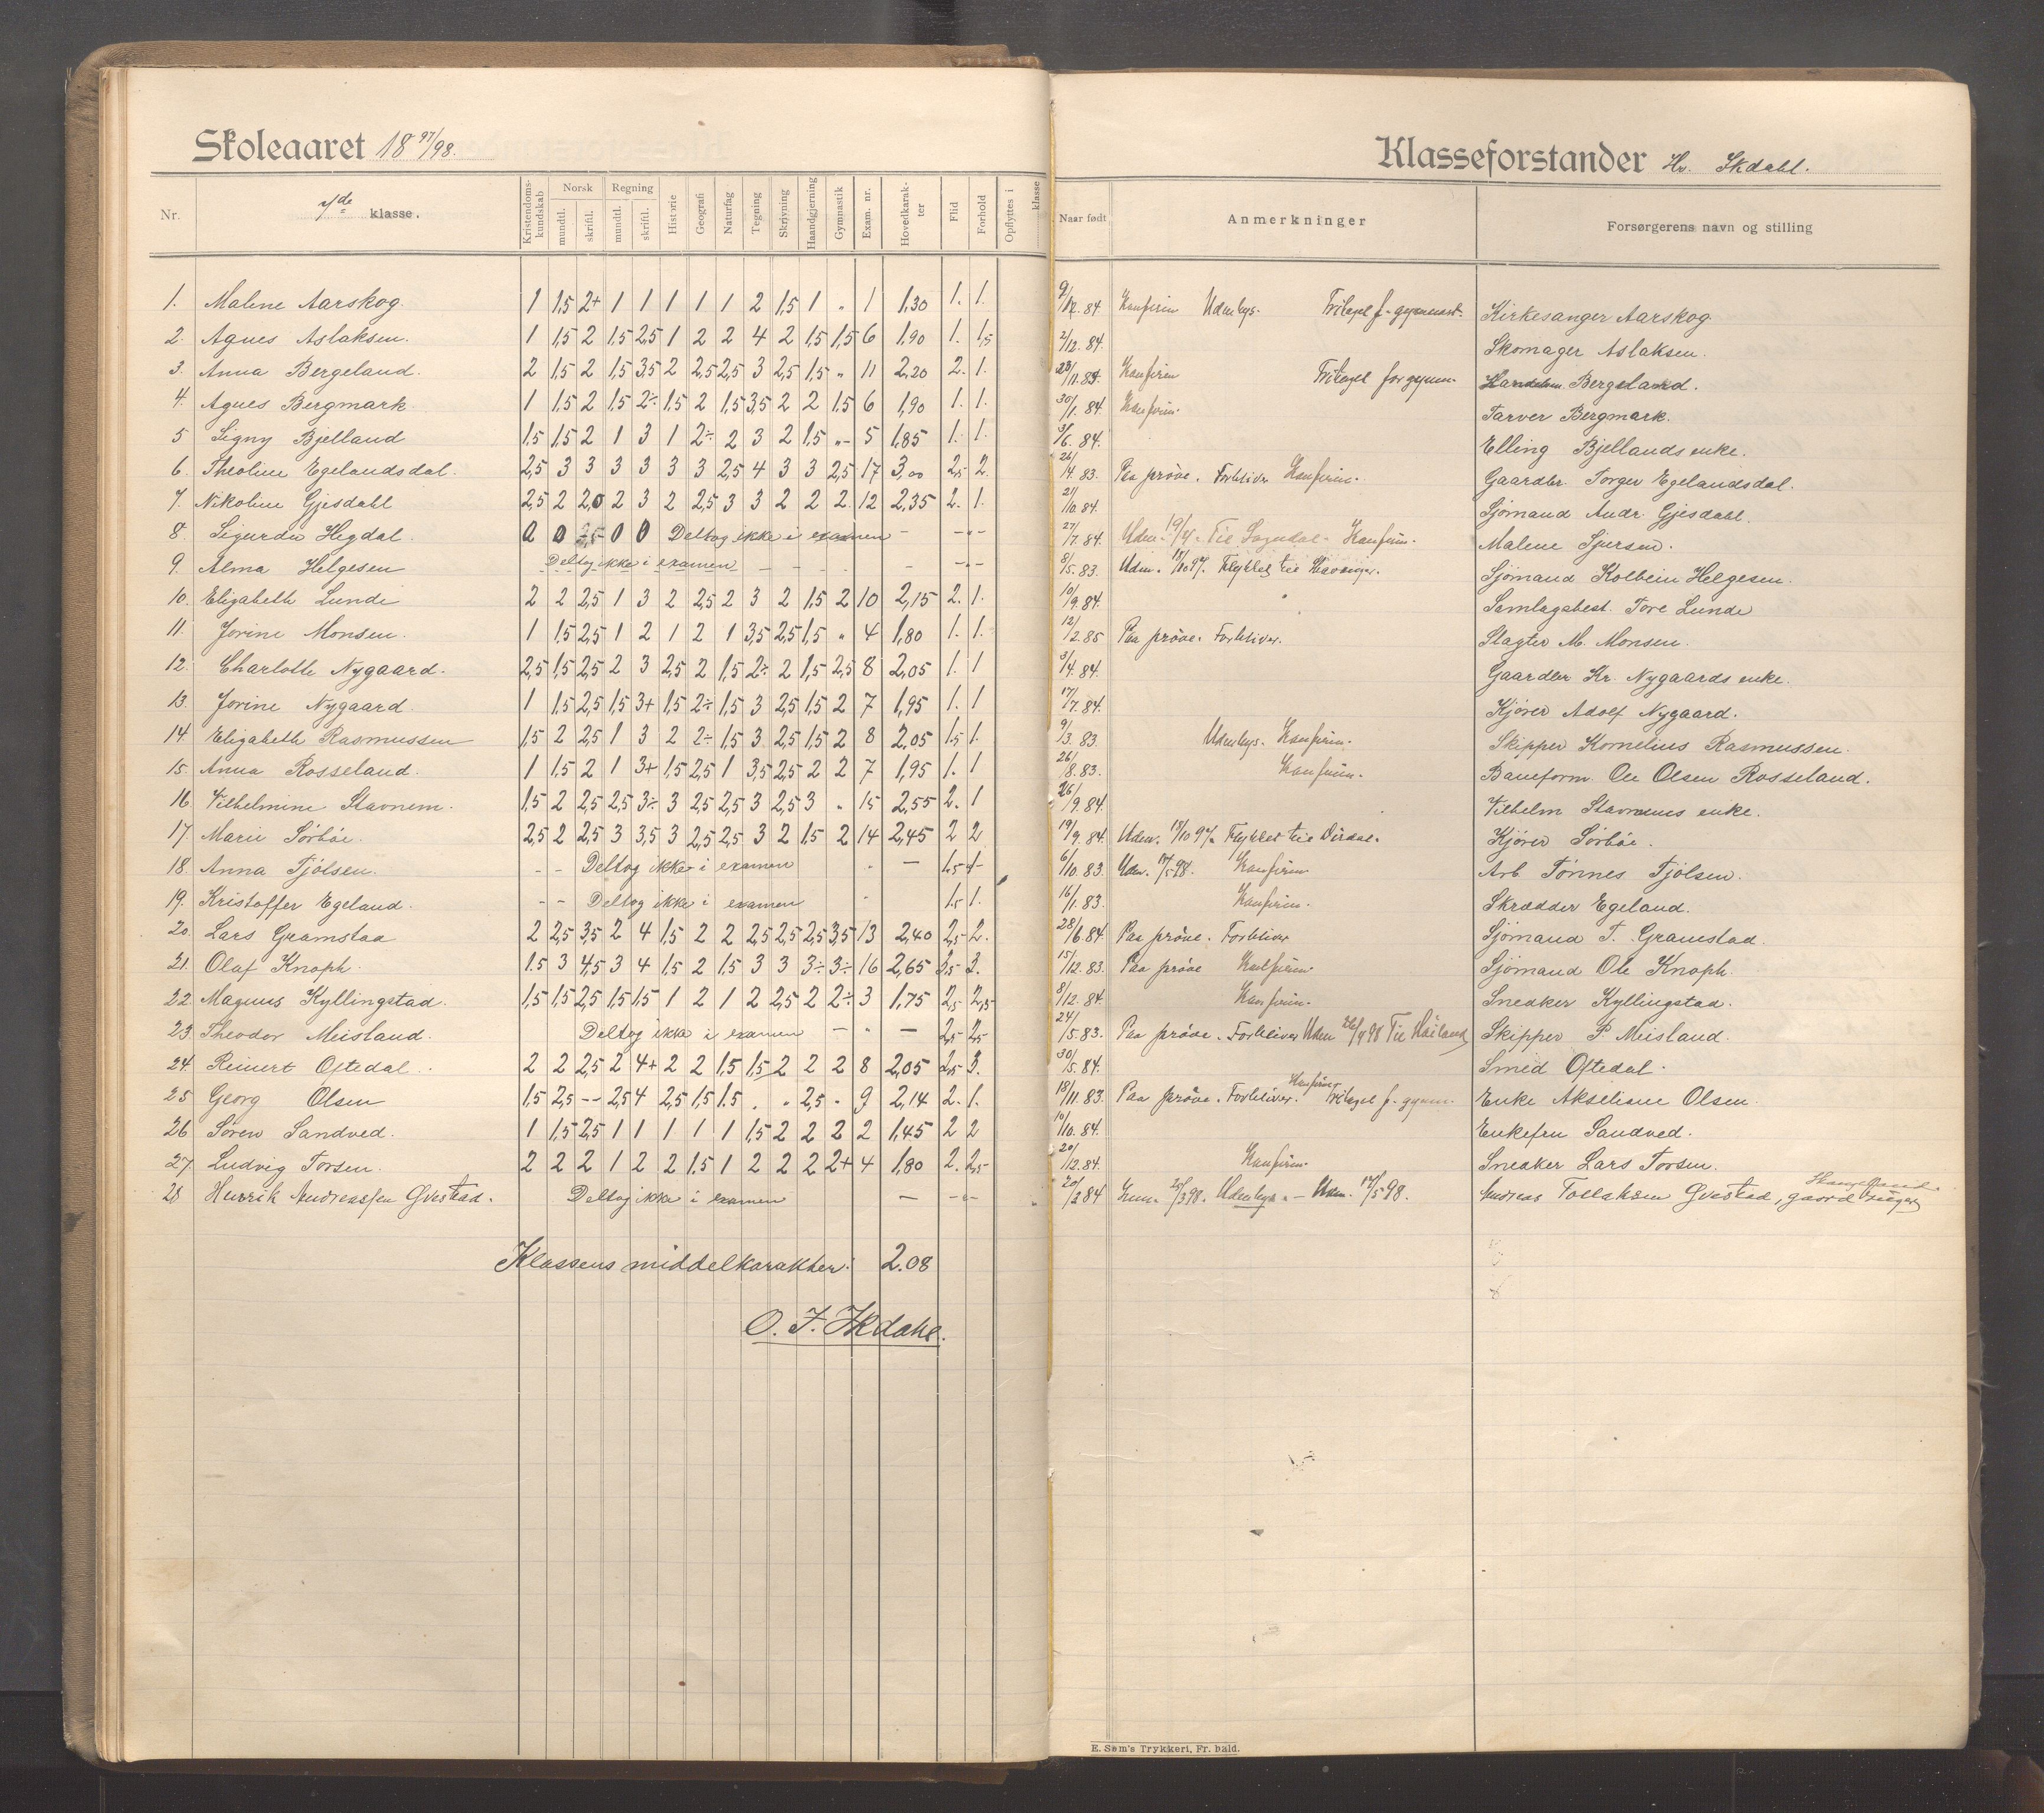 Skoleaaret 18 97/98.
Nr. 7de klasse. Kristendomskundskab Norsk mundtl. skriftl. Regning mundtl. skriftl. Historie Geografi Naturfag Tegning Skrivning Haandgjerning Gymnastik Exam. nr. Hovedkarakter Flid Forhold Opflyttes i klasse
1. Malene Aarskog. 1 1,5 2+ 1 1 1 1 1 2 1,5 1 " 1 1,30 1. 1.
2. Agnes Aslaksen. 1 1,5 2 1,5 2,5 1 2 2 4 2 1,5 1,5 6 1,90 1. 1,5
3. Anna Bergeland. 2 1,5 2 1,5 3,5 2 2,5 2,5 3 2,5 1,5 " 11 2,20 2. 1.
4. Agnes Bergmark. 1 1,5 2 1,5 2÷ 1,5 2 1,5 3,5 2 2 1,5 6 1,90 1. 1.
5 Signy Bjelland 1,5 1,5 2 1 3 1 2÷ 2 3 2 1,5 " 5 1,85 1. 1.
6. Theoline Egelandsdal. 2,5 3 3 3 3 3 3 2,5 4 3 3 2,5 17 3,00 2,5 2.
7. Nikoline Gjesdahl 2,5 2 2,0 2 3 2 2,5 3 3 2 2 2. 12 2,35 2. 1.
8. Sigurdu Hegdal. 0 0 0 0 Deltog ikke i examen
9. Alma Helgesen Deltog ikke i examen
10. Elizabeth Lunde 2 2 2,5 1 3 2 2,5 2 3 2 1,5 2 10 2,15 2. 1.
11. Jorine Monsen. 1 1,5 2,5 1 2 1 2 1 3,5 2,5 1,5 " 4 1,80 1. 1.
12. Charlotte Nygaard. 2,5 1,5 2,5 2 3 2,5 2 1,5 2÷ 2 1,5 2,5 8 2,05 1. 1
13. Jorine Nygaard. 1 1,5 2,5 1,5 3+ 1,5 2÷ 1,5 3 2,5 1,5 2 7 1,95 1. 1
14. Elizabeth Rasmussen 1,5 2 2,5 1 3 2 2÷ 1,5 3 2,5 1,5 2 8 2,05 1,5 1.
15. Anna Rosseland. 1 1,5 2 1 3+ 1,5 2,5 1 3,5 2,5 2 2 7 1,95 1. 1
16. Vilhelmine Stavnem. 1,5 2 2,5 2,5 3÷ 3 2,5 2,5 3 2,5 3 " 15 2,55 2. 1
17. Marie Sørbøe. 2,5 2 2,5 3 3,5 3 2,5 2,5 3 2 1,5 2 14 2,45 2 2
18. Anna Tjølsen. - - Deltog ikke i examen — 1,5
19. Kristoffer Egeland. - - Deltog ikke i examen 1,5 1.
20. Lars Gramstad 2 2,5 3,5 2 4 1,5 2 2 2,5 2,5 2,5 3,5 13 2,40 2,5 2.
21. Olaf Knoph. 1.5 3 4,5 3 4 1,5 2 1,5 3 3 3÷ 3÷ 16 2,65 3,5 3.
22. Magnus Kyllingstad. 1,5 1,5 2,5 1,5 1,5 1 2 1 2 2,5 2 2÷ 3 1,75 2,5 2,5
23. Theodor Meisland. Deltog ikke i examen — " — 2,5 2,5
24. Reinert Oftedal. 2 2 2,5 2 4+ 2 2 1,5 1,5 2 2 2 8 2,05 2,5 3.
25 Georg Olsen 1,5 2,5 -- 2,5 4 2,5 1,5 1.5 . " 2,5 " 9 2,14 2. 1.
26 Søren Sandved. 1 1,5 2,5 1 1 1 1 1 1,5 2 2 2 2 1,45 2 2
27. Ludvig Torsen. 2 2 2 1 2 2 1,5 1 2 2 2 2+ 4 1,80 2. 2,5
28 Henrik Andreassen Gvestad. Deltog ikke i examen — -"-
Klassens middelkarakter: 2.08
Klasseforstander Hr. Ikdahl.
Naar født Anmerkninger Forsørgerens navn og stilling
9/12. 84. Konfirm Udenbys. Fritaget f. gymnast. Kirkesanger Aarskog.
2/12. 84. Skomager Aslaksen.
23/11. 83. Konfirm Fritaget for gymn. Bergeland.
30/1. 84. Konfirm. Farver Bergmark.
3/6. 84. Elling Bjellands enke.
26/4. 83. Paa prøve. Forbliver Konfirm. Gaardbr. Torger Egelandsdal.
21/10. 84. Sjømand Andr. Gjesdahl.
27/7. 84. Udm. 19/4. Til Sogndal. Konfirm. Malene Sjursen.
8/5. 83. Udm. 18/10 97. Flyttet til Stavanger. Sjømand Kolbein Helgesen.
10/9. 84. Samlagsbest. Tore Lunde
12/2. 85 Paa prøve. Forbliver. Slagter M. Monsen.
3/4. 84. Gaardbr Kr. Nygaards enke.
17/7. 84. Kjører Adolf Nygaard.
9/3. 83. Udenbys. Konfirm. Skipper Kornelius Rasmussen.
26/8. 83. Konfirm. Baneform. Ole Olsen Rosseland.
26/9. 84. Vilhelm Stavnems enke.
19/9. 84. Udm. 18/10 97. Flyttet til Dirdal. Kjører Sørbøe.
6/10. 83. Udm. 17/5 98. Konfirm Arb Tønnes Tjølsen.
16/1. 83. Konfirm. Skrædder Egeland.
28/6. 84. Paa prøve. Forbliver Sjømand T. Gramstad.
15/12. 83. Paa prøve Konfirm. Sjømand Ole Knoph.
8/12. 84. Konfirm. Snedker Kyllingstad.
24/5. 83. Paa prøve. Forbliver Udm 26/4 98 Til Høiland Skipper P. Meisland.
30/5. 84. Smed Oftedal.
18/11. 83. Paa prøve. Forbliver. Konfirm. Fritaget f. gymn. Enke Akseliane Olsen.
10/10. 84. Enkefru Sandved.
20/12. 84. Konfirm. Snedker Lars Torsen.
20/2 84 Inm. 25/3 98. Udenbys. — Udm. 17/5 98. Andreas Tollaksen Gvestad,
E. Søm's Trykkeri, Fr. hald.